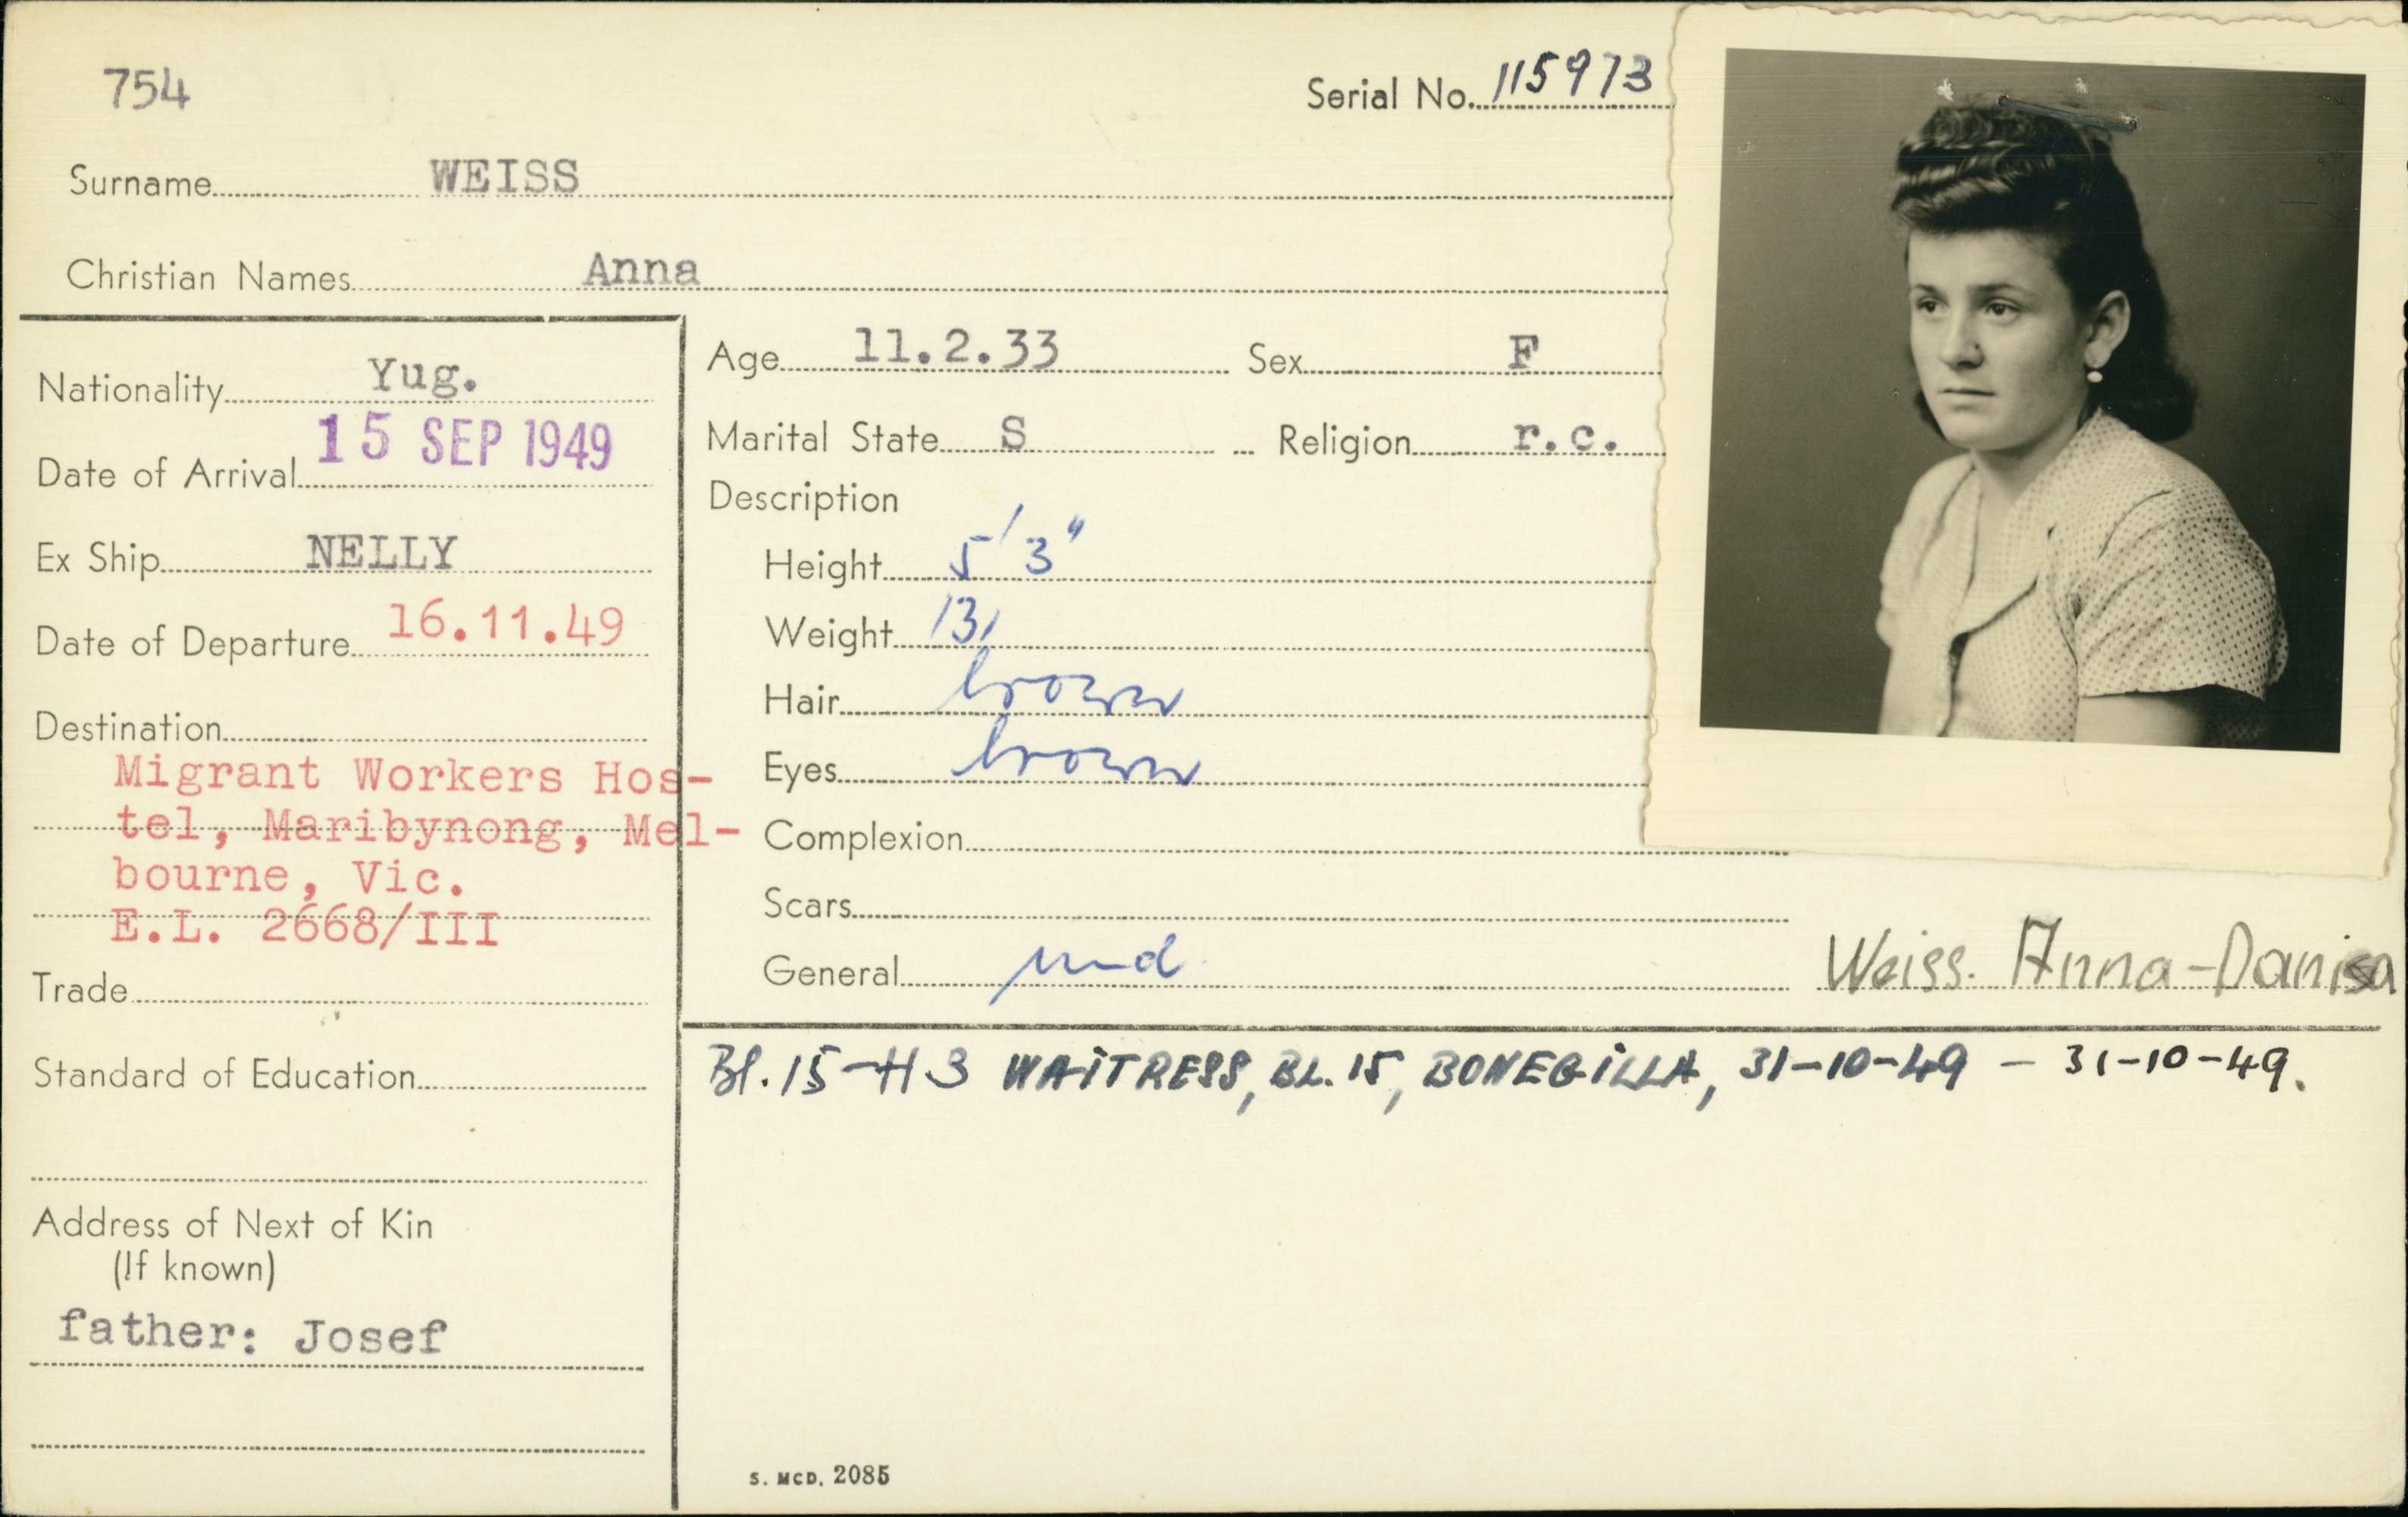 754
Serial No. 115973
Surname WEISS
Christian Names Anna
Nationality Yug.
Date of Arrival 15 SEP 1949
Ex Ship NELLY
Date of Departure 16.11.49
Destination
Migrant Workers Hos-
tel, Maribynong, Mel-
bourne, Vic.
E.L. 2668/III
Trade
Standard of Education
Address of Next of Kin
(If known)
father: Josef
Age 11.2.33 Sex F
Marital State S Religion r.c.
Description
Height 5'3"
Weight 131
Hair brown
Eyes brown
Complexion
Scars
General
Weiss. Anna-Danisa
Bl. 15-H3 WAITRESS, BL. 15, BONEGILLA, 31-10-49 - 31-10-49.
S. MCD. 2085